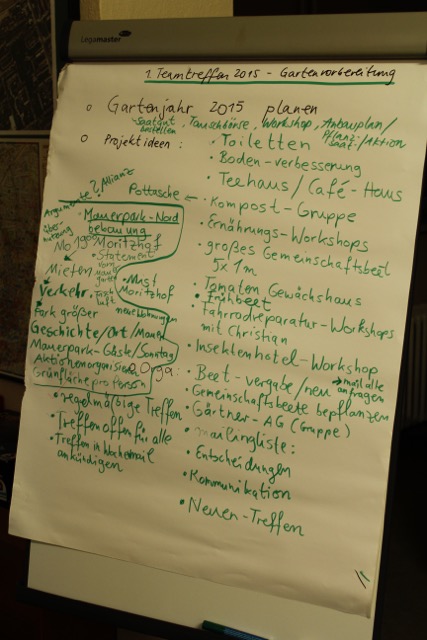 Legamaster
1. Teamtreffen 2015 - Gartenvorbereitung
o Gartenjahr 2015 planen
- Saatgut bestellen, Tauschbörse, Workshop, Anbauplan/
Pflanz-/Saat-/Aktion
o Projektideen:
• Toiletten
• Boden-verbesserung
• Teehaus / Café-Haus
• Kompost-Gruppe
• Ernährungs-Workshops
• großes Gemeinschaftsbeet
5x1m
• Tomaten Gewächshaus
• Frühbeet
• Fahrradreparatur-Workshops
mit Christian
• Insektenhotel-Workshop
• Beet-vergabe/neu → mail alte
anfragen
• Gemeinschaftsbeete bepflanzen
• Gärtner-AG (Gruppe)
• mailingliste:
• Entscheidungen
• Kommunikation
• Neuen-Treffen
? Allianz
Pottasche
Argumente
• Mauerpark-Nord
bebauung
• Moritzhof
• Statement
Mieten
• Mist
Moritzhof
Verkehr
Park größer
Geschichte/Ort/Mauer
Mauerpark-Gäste/Sonntag
Aktionen organisieren
Grünfläche pro Person
o Orga:
• regelmäßige Treffen
• Treffen offen für alle
• Treffen in wochenmail
ankündigen